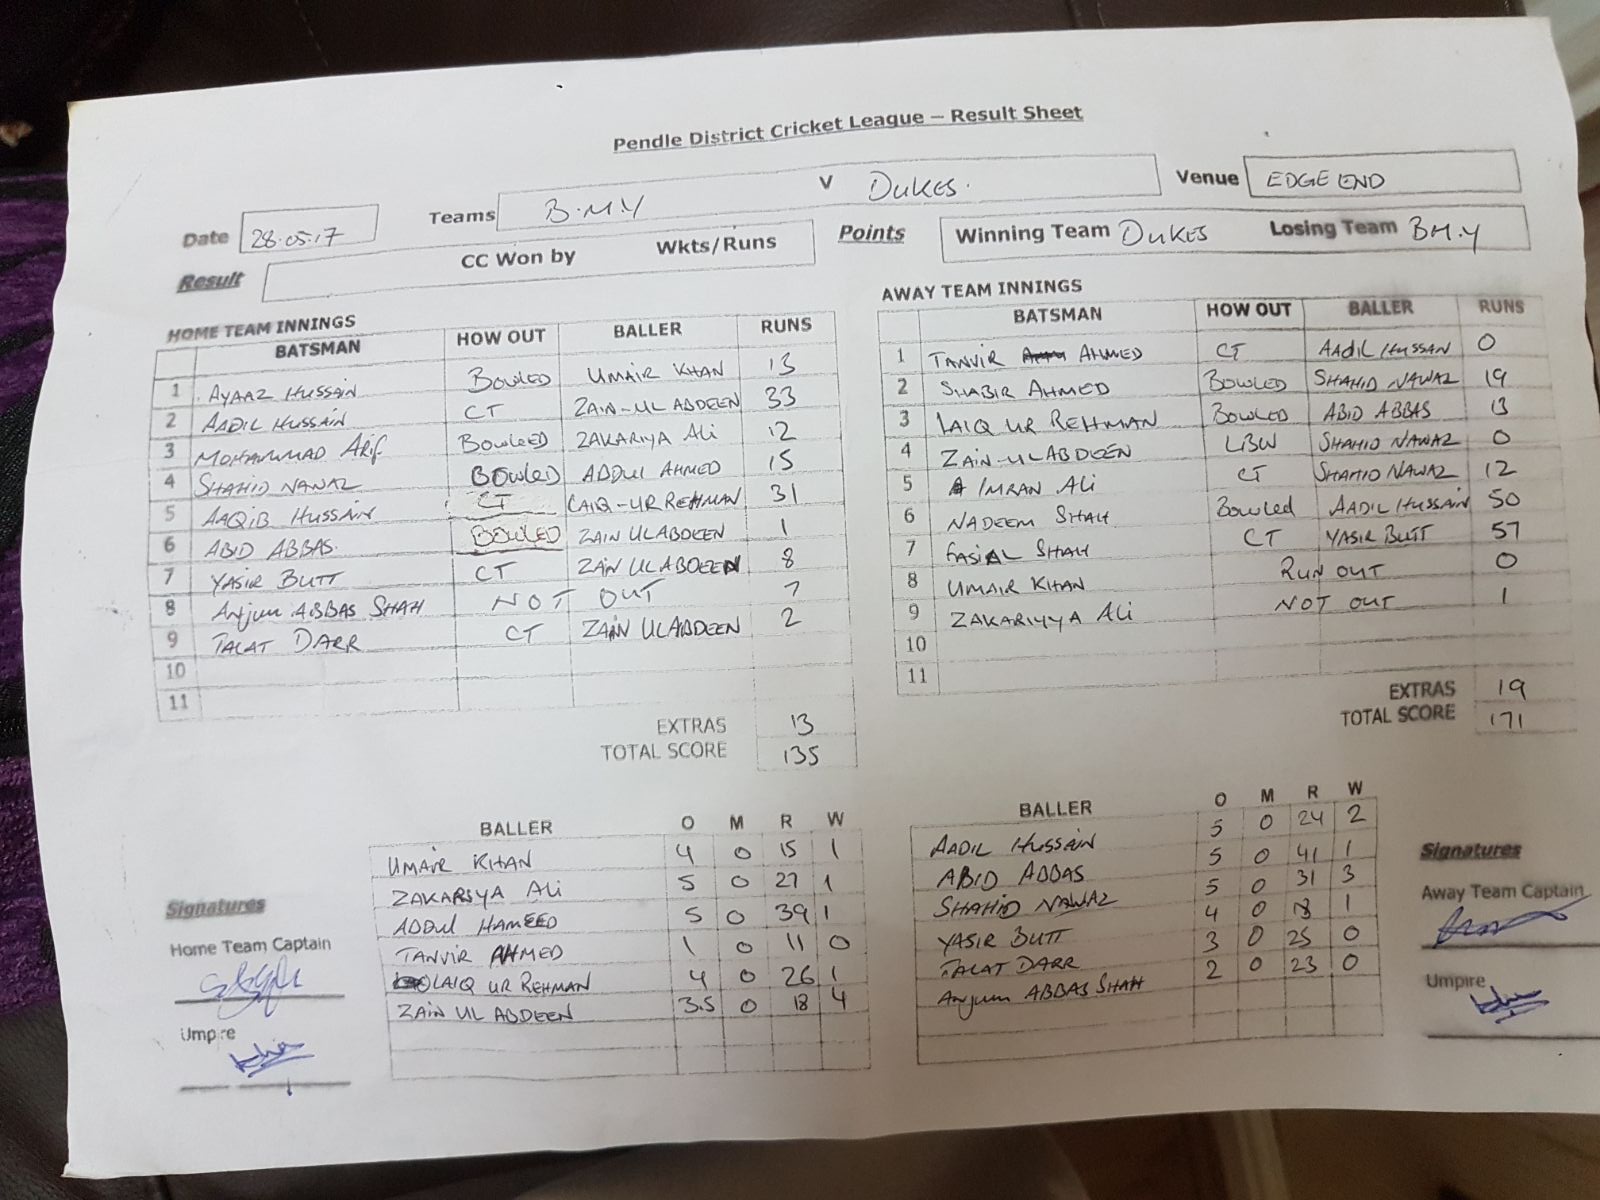 Pendle District Cricket League – Result Sheet
Date 28.05.17 Teams B.M.Y V DUKES. Venue EDGE END
Result CC Won by Wkts/Runs Points Winning Team DUKES Losing Team BM.Y
HOME TEAM INNINGS
BATSMAN HOW OUT BALLER RUNS
1 AYAAZ HUSSAIN BOWLED UMAIR KHAN 13
2 AADIL HUSSAIN CT ZAIN-UL ABDEEN 33
3 MOHAMMAD ARIF BOWLED ZAKARIYA ALI 12
4 SHAHID NAWAZ BOWLED ABDUL AHMED 15
5 AAQIB HUSSAIN CT LAIQ-UR REHMAN 31
6 ABID ABBAS. BOWLED ZAIN UL ABDEEN 1
7 YASIR BUTT CT ZAIN UL ABDEEN 8
8 Anjum ABBAS SHAH NOT OUT 7
9 TALAT DARR CT ZAIN UL ABDEEN 2
10
11
EXTRAS 13
TOTAL SCORE 135
AWAY TEAM INNINGS
BATSMAN HOW OUT BALLER RUNS
1 TANVIR AHMED CT AADIL HUSSAN 0
2 SHABIR AHMED BOWLED SHAHID NAWAZ 19
3 LAIQ UR REHMAN BOWLED ABID ABBAS 13
4 ZAIN-UL ABDEEN LBW SHAHID NAWAZ 0
5 IMRAN ALI CT SHAHID NAWAZ 12
6 NADEEM SHAH Bowled AADIL HUSSAIN 50
7 FASIAL SHAH CT YASIR BUTT 57
8 UMAIR KHAN RUN OUT 0
9 ZAKARIYYA ALI NOT OUT 1
10
11
EXTRAS 19
TOTAL SCORE 171
BALLER O M R W
UMAIR KHAN 4 0 15 1
ZAKARIYA ALI 5 0 27 1
ABDUL HAMEED 5 0 39 1
TANVIR AHMED 1 0 11 0
LAIQ UR REHMAN 4 0 26 1
ZAIN UL ABDEEN 3.5 0 18 4
Signatures
Home Team Captain
Umpire
BALLER O M R W
AADIL HUSSAIN 5 0 24 2
ABID ABBAS 5 0 41 1
SHAHID NAWAZ 5 0 31 3
YASIR BUTT 4 0 18 1
TALAT DARR 3 0 25 0
Anjum ABBAS SHAH 2 0 23 0
Signatures
Away Team Captain
Umpire